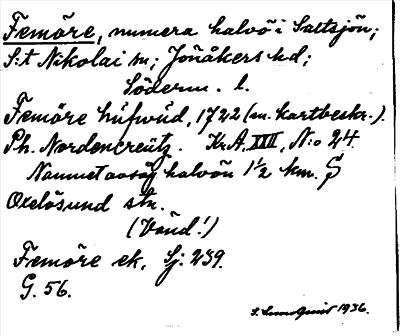 Femöre, numera halvö i Saltsjön;
S:t Nikolai sn; Jönåkers hd;
Söderm. l.
Femöre hufwud, 1722 (m. kartbeskr.).
Ph. Nordencreutz. Kr.A. XXII, N:o 24.
Namnet avsåg halvön 1½ km. S
Oxelösund stn.
(Vänd!)
Femöre ek. Sj: 239.
G. 56.
S. Lundqvist 1936.